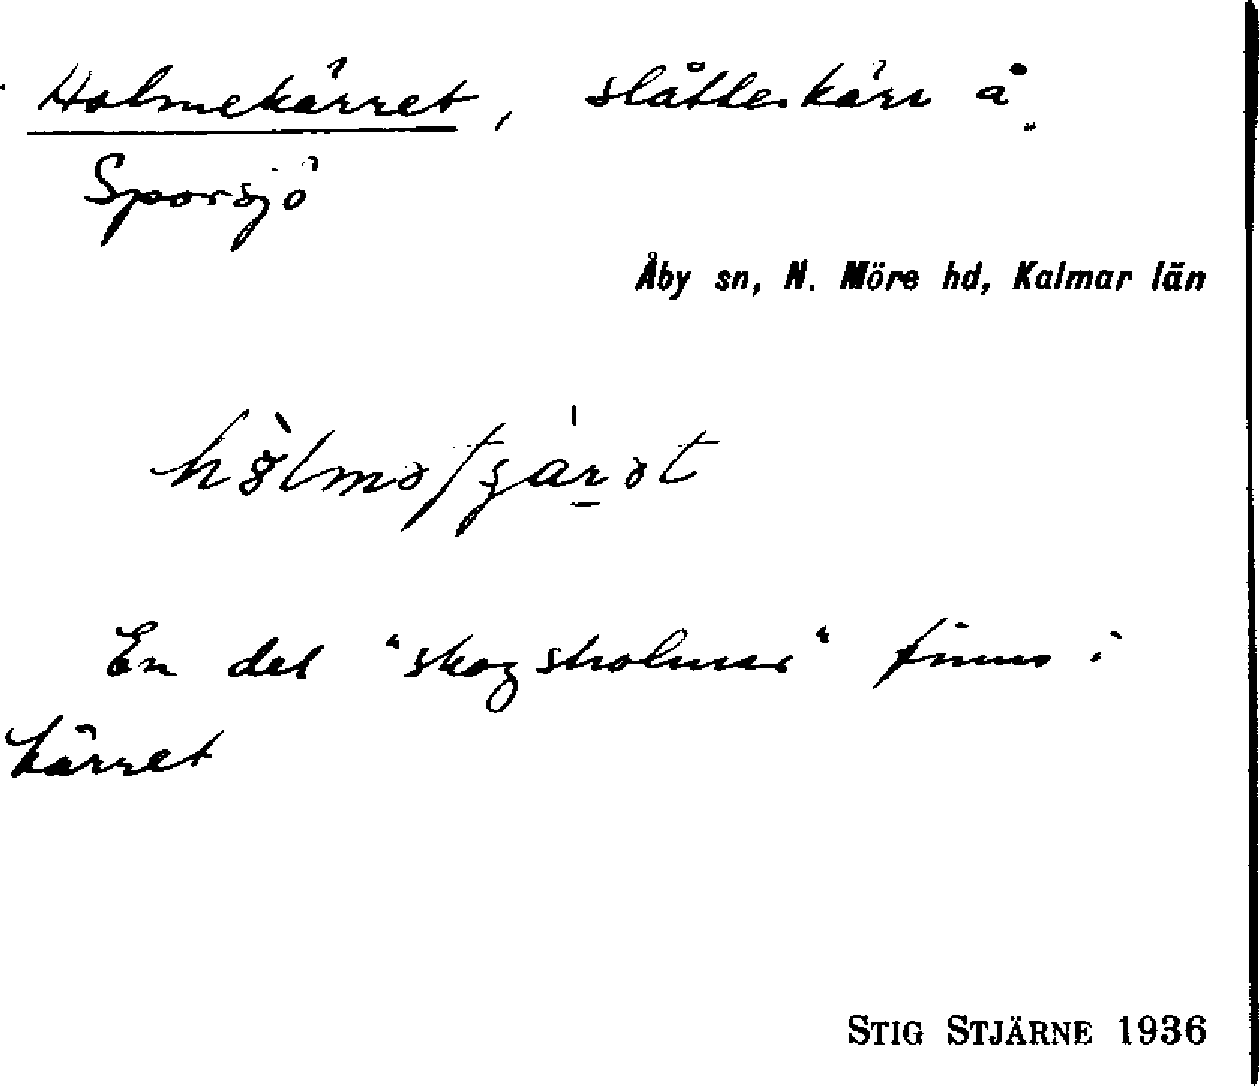 Holmekärret, slåtterkärr å
Sporsjö
Åby sn, N. Möre hd, Kalmar län
En del "skogsholmar" finns i
kärret
STIG STJÄRNE 1936